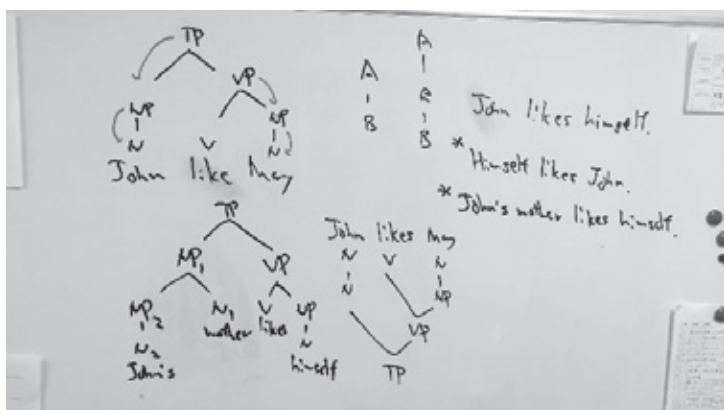 TP
VP
NP
NP
N
V
N
John like May
A
B
A
B
John likes himself.
* Himself likes John.
* John's mother likes himself.
TP
NP₁
VP
NP₂
N₁
V
NP
mother likes
N₂
N
John's
himself
John likes May
N
V
N
N
NP
VP
TP